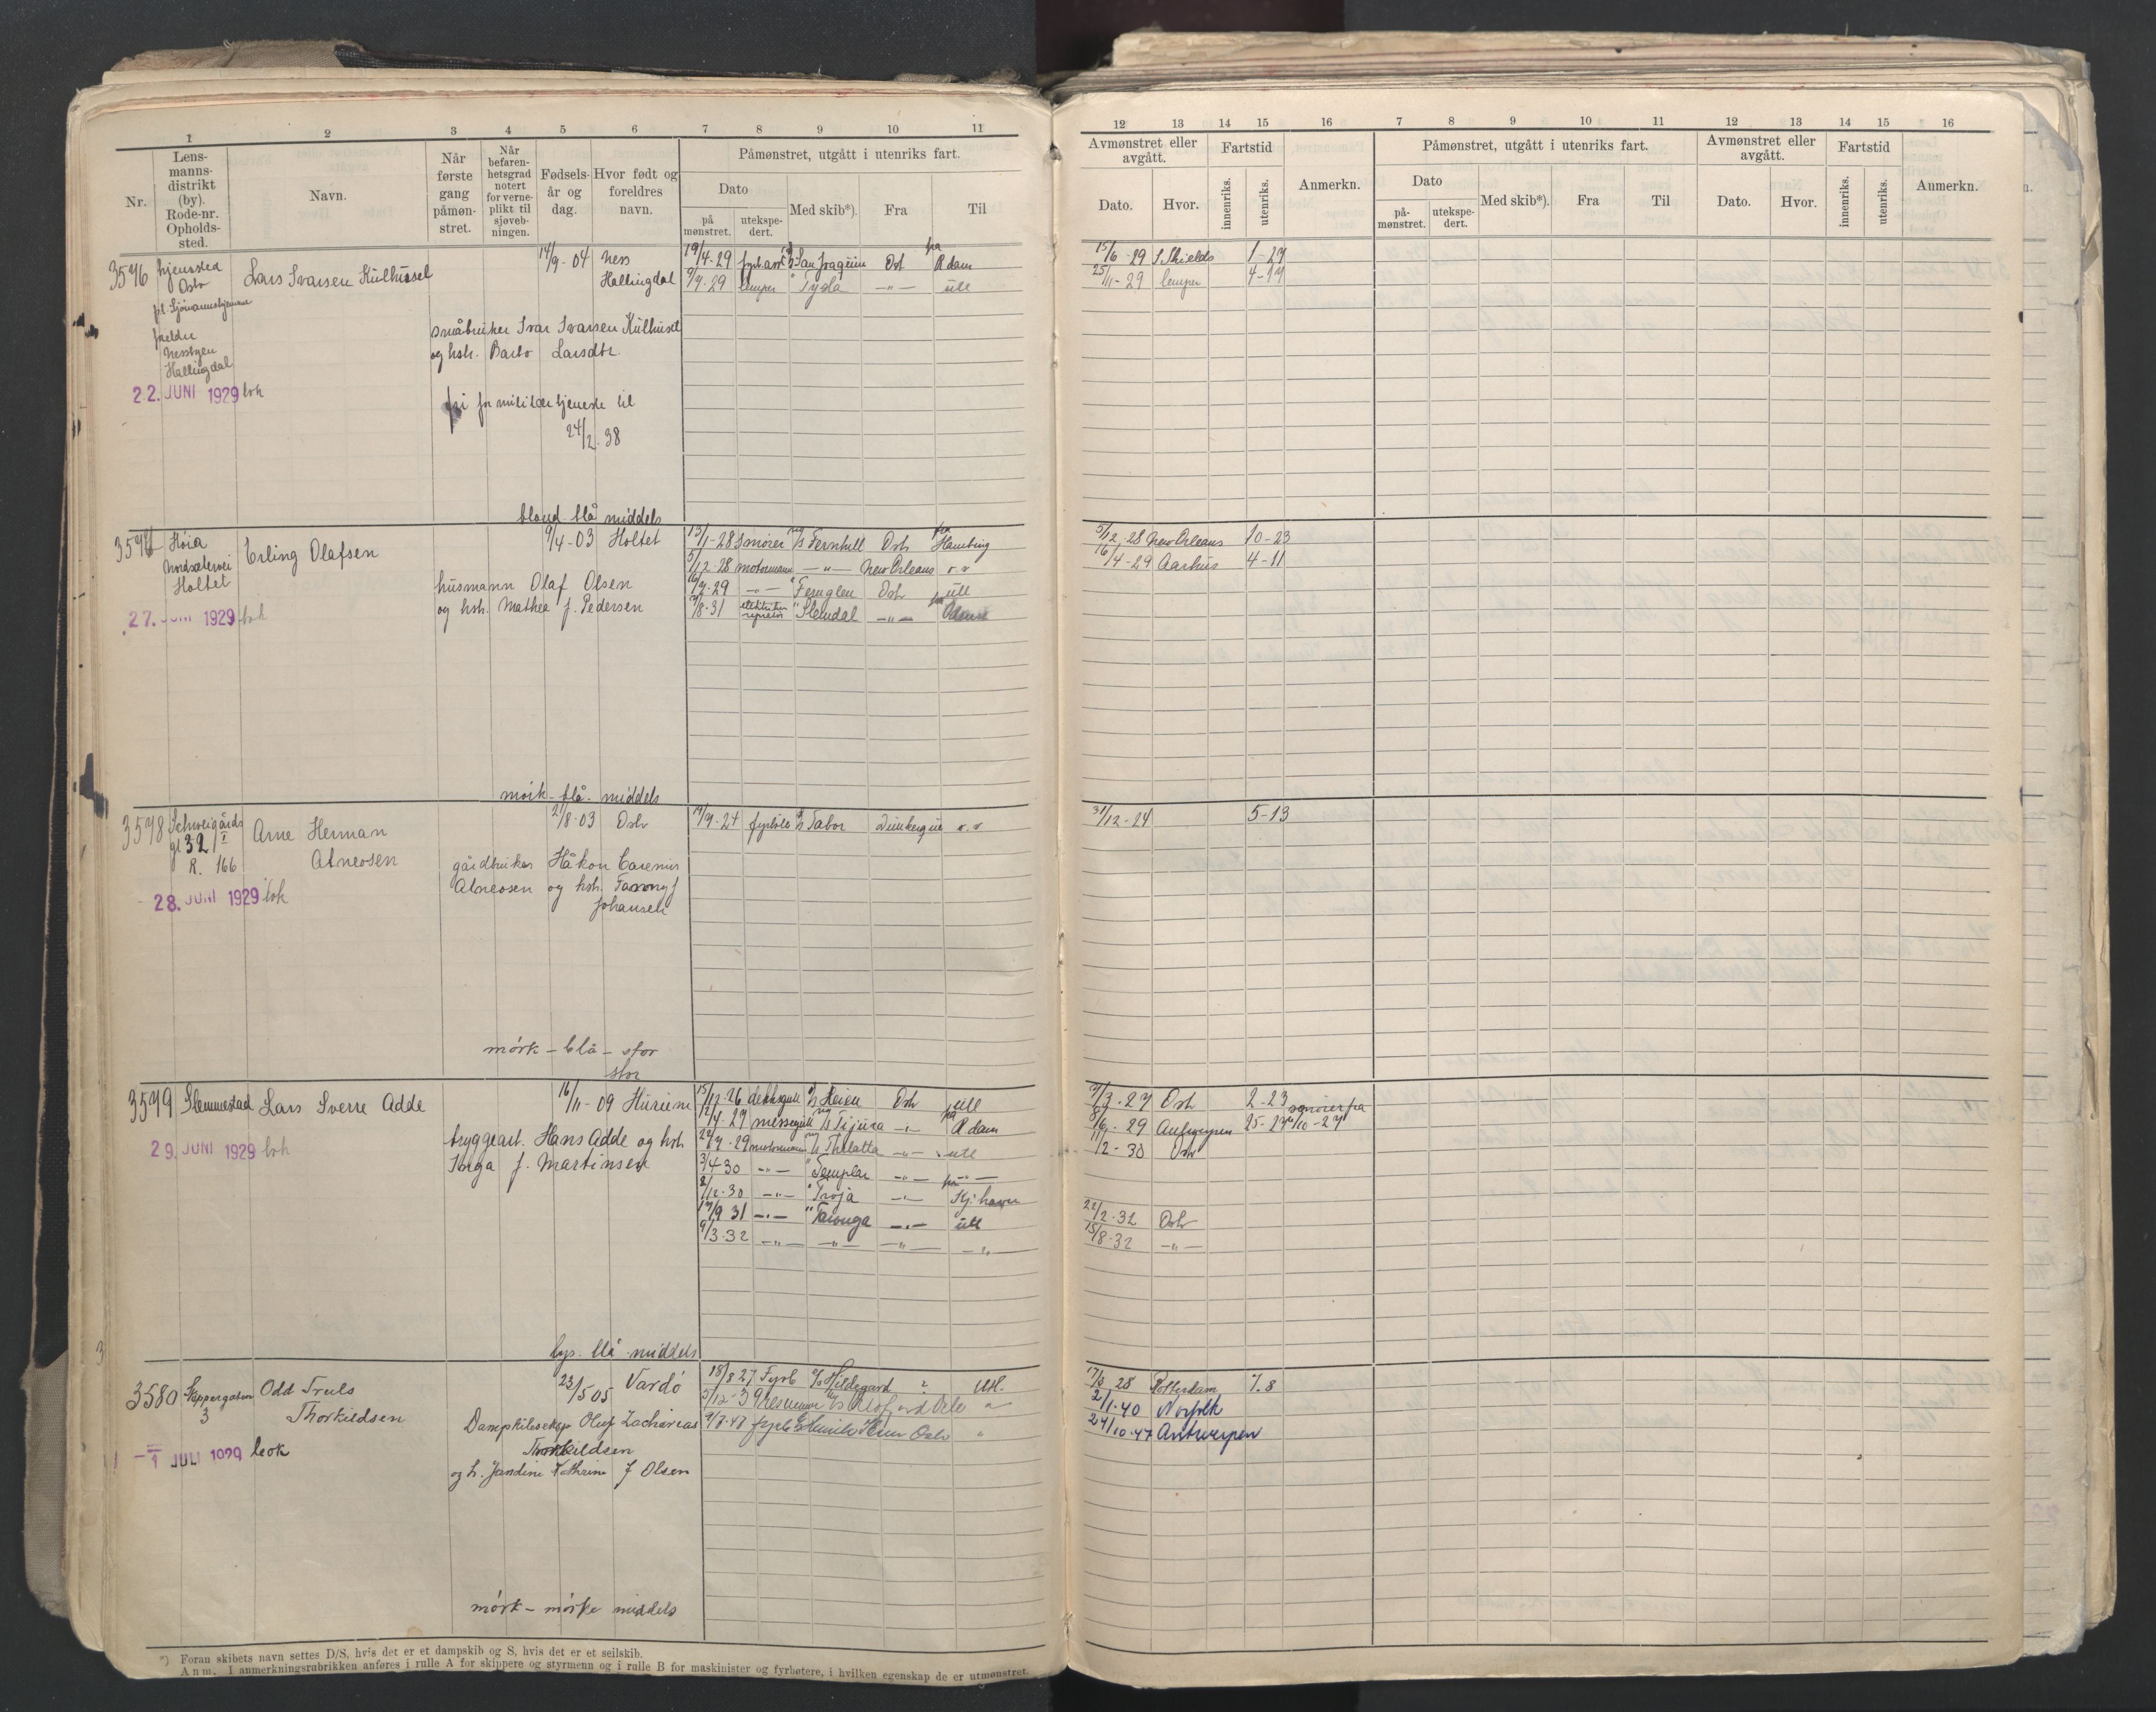 1 2 3 4 5 6 7 8 9 10 11
Nr.
Lens-
manns-
distrikt
(by).
Rode-nr.
Opholds-
sted.
Navn.
Når
første
gang
påmøn-
stret.
Når
befaren-
hetsgrad
notert
for verne-
plikt til
sjøveb-
ningen.
Fødsels-
år og
dag.
Hvor født og
foreldres
navn.
Påmønstret, utgått i utenriks fart.
Dato
på
mønstret.
utekspe-
dert.
Med skib*).
Fra
Til
3576 hjemsted Lars Ivarsen Kulhusel 14/9-04 Ness 19/4-29 San Joaquin Osl R dam
Oslo Hallingdal 9/7-29 lemper " Tyda —"— utl
foreldre
Nesbyen
Hallingdal
småbruker Ivar Ivarsen Kulhusel
og hst. Barbo Larsdtr.
22. JUNI 1929 bok
fri for militær tjeneste til
24/2.38
blond blå middels
3577 Høia Erling Olafsen 9/4-03 Holtet 13/1-28 smører M/S Fernhill Osl fra Hamburg
Holtet 5/12-28 motormann —"— New Orleans v.v
husmann Olaf Olsen 16/7-29 —"— " Fernglen Osl utl
og hst. Mathea f. Pedersen /8-31 " Slemdal —"—
27. JUNI 1929 bok
mørk - blå - middels
3578 Schweigårds Arne Herman 21/8-03 Oslo 17/9-24 fyrbøt D/S Tabor Dunkerque v.v
gt 32 I
R. 166
gårdbruker Håkon Carenius
og hst. Fanny f
Johansen
28. JUNI 1929 bok
mørk - blå - stor
stor
3579 Slemmestad Lars Sverre Adde 16/11-09 Hurum 15/12-26 dekksgutt D/S Heien Osl utl
12/4-27 messegutt M/S Tijuca —"— R dam
bryggearb. Hans Adde og hst. 22/7-29 motormann M/S Thalatta —"— utl
Inga f. Martinsen 3/4 30 —"— " Templar —"— —"—
2/12-30 —"— " Troja —"— Kj. havn
17/9 31 —"— " Taronga —"— utl
9/3-32 —"— —"— —"— —"—
29. JUNI 1929 bok
lys. blå middels
3580 Skippergaten Odd Truls 23/5 05 Vardö 18/8 27 Fyrb D/S Hildegard ? Utl.
3 Thorkildsen
Dampskibsexp Oluf Zacharias
Thorkildsen
og h. Jansine Kathrine f Olsen
1 JULI 1929 bok
mørk - mørke middels
*) Foran skibets navn settes D/S, hvis det er et dampskib og S, hvis det er et seilskib.
Anm. I anmerkningsrubrikken anføres i rulle A for skippere og styrmenn og i rulle B for maskinister og fyrbøtere, i hvilken egenskap de er utmønstret.
12 13 14 15 16 7 8 9 10 11 12 13 14 15 16
Avmønstret eller
avgått.
Dato.
Hvor.
Fartstid
innenriks.
utenriks.
Anmerkn.
Påmønstret, utgått i utenriks fart.
Dato
på-
mønstret.
utekspe-
dert.
Med skib*).
Fra
Til
Avmønstret eller
avgått.
Dato.
Hvor.
Fartstid
innenriks.
utenriks.
Anmerkn.
15/6-29 S. Shields 1-27
25/11-29 lemper 4-17
5/12-28 New Orleans 10-23
16/4-29 Aarhus 4-11
31/12-24 5-13
9/3-27 Osl 2-23
8/6-29 Antwerpen
11/2-30 Osl
22/2-32 Osl
15/8-32 —"—
17/3 28 Rotterdam 7.8
2/1-40 Norfolk
24/10-47 Antwerpen